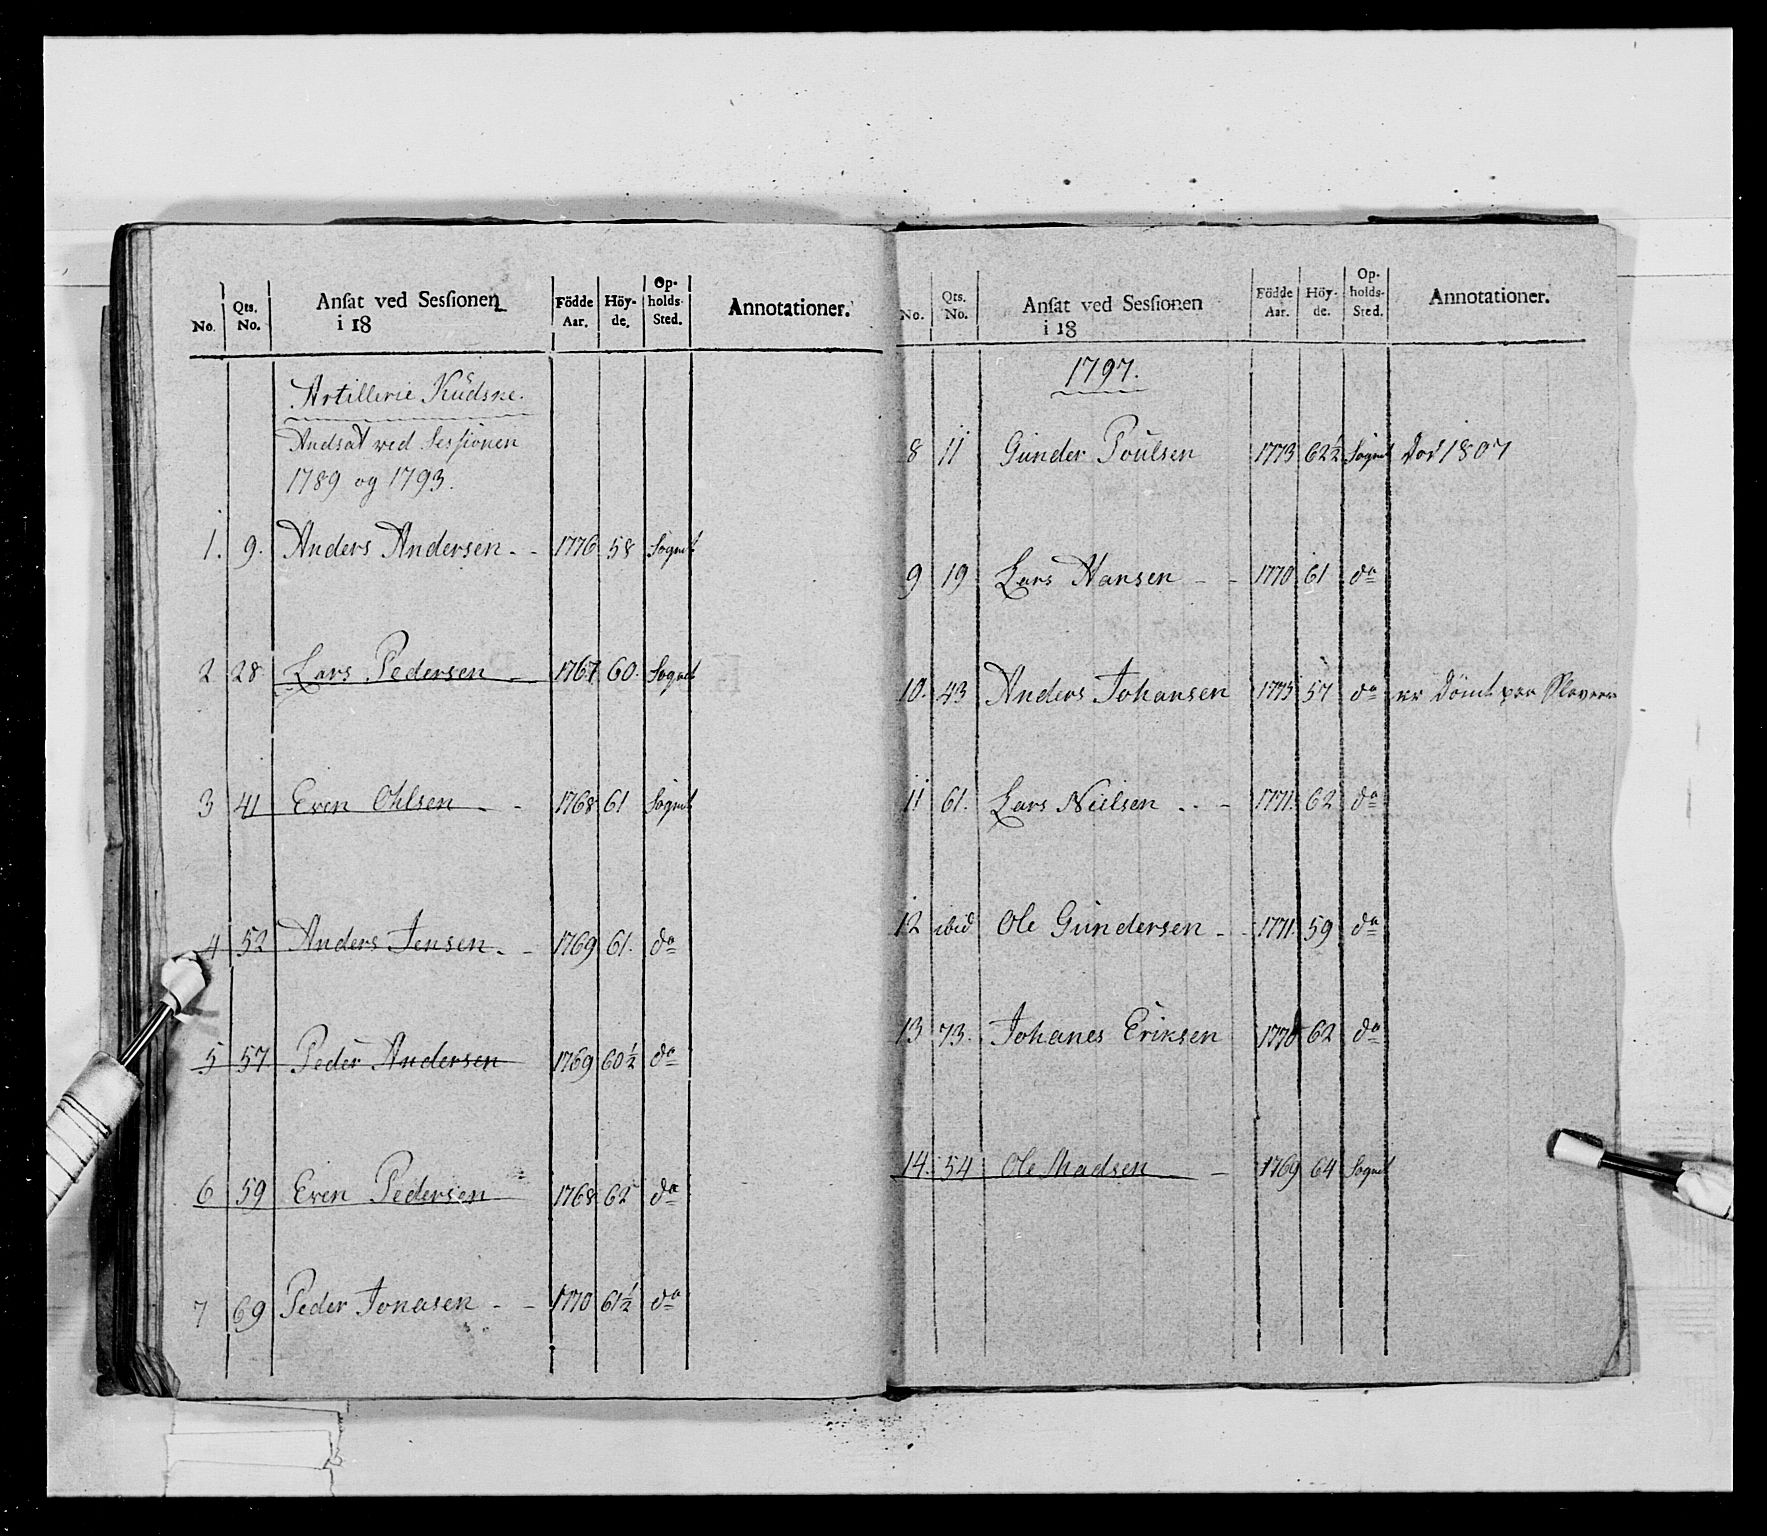 No. Qts. No. Ansat ved Sessionen i 18 Födde Aar. Höy-de. Op-holds-Sted. Annotationer.
Artillerie Kudske.
Andsat ved Sessionen
1789 og 1793.
1. 9. Anders Andersen - - 1776 58 Sognet
2 28 Lars Pedersen - 1767 60. Sognet
3 41 Even Ohlsen - - 1768 61 Sognet
4 52 Anders Jensen. - 1769 61. do
5 57 Peder Andersen 1769 60½ do
6 59 Even Pedersen 1768 62 do
7 69 Peder Jonasen - - 1770 61½ do
No. Qts. No. Ansat ved Sessionen i 18 Födde Aar. Höy-de. Op-holds-Sted. Annotationer.
1797.
8 11 Gunder Poulsen 1773 62½ Sognet Död 1807
9 19 Lars Hansen - - 1770 61 do
10. 43 Anders Johansen 1775 57 do er Dömt paa Slaveri
11 61. Lars Nielsen . . - 1771. 62 do
12 ibid Ole Gundersen - - 1771. 59 do
13 73. Johanes Eriksen 1770 62 do
14. 54 Ole Madsen - 1769 64 Sognet